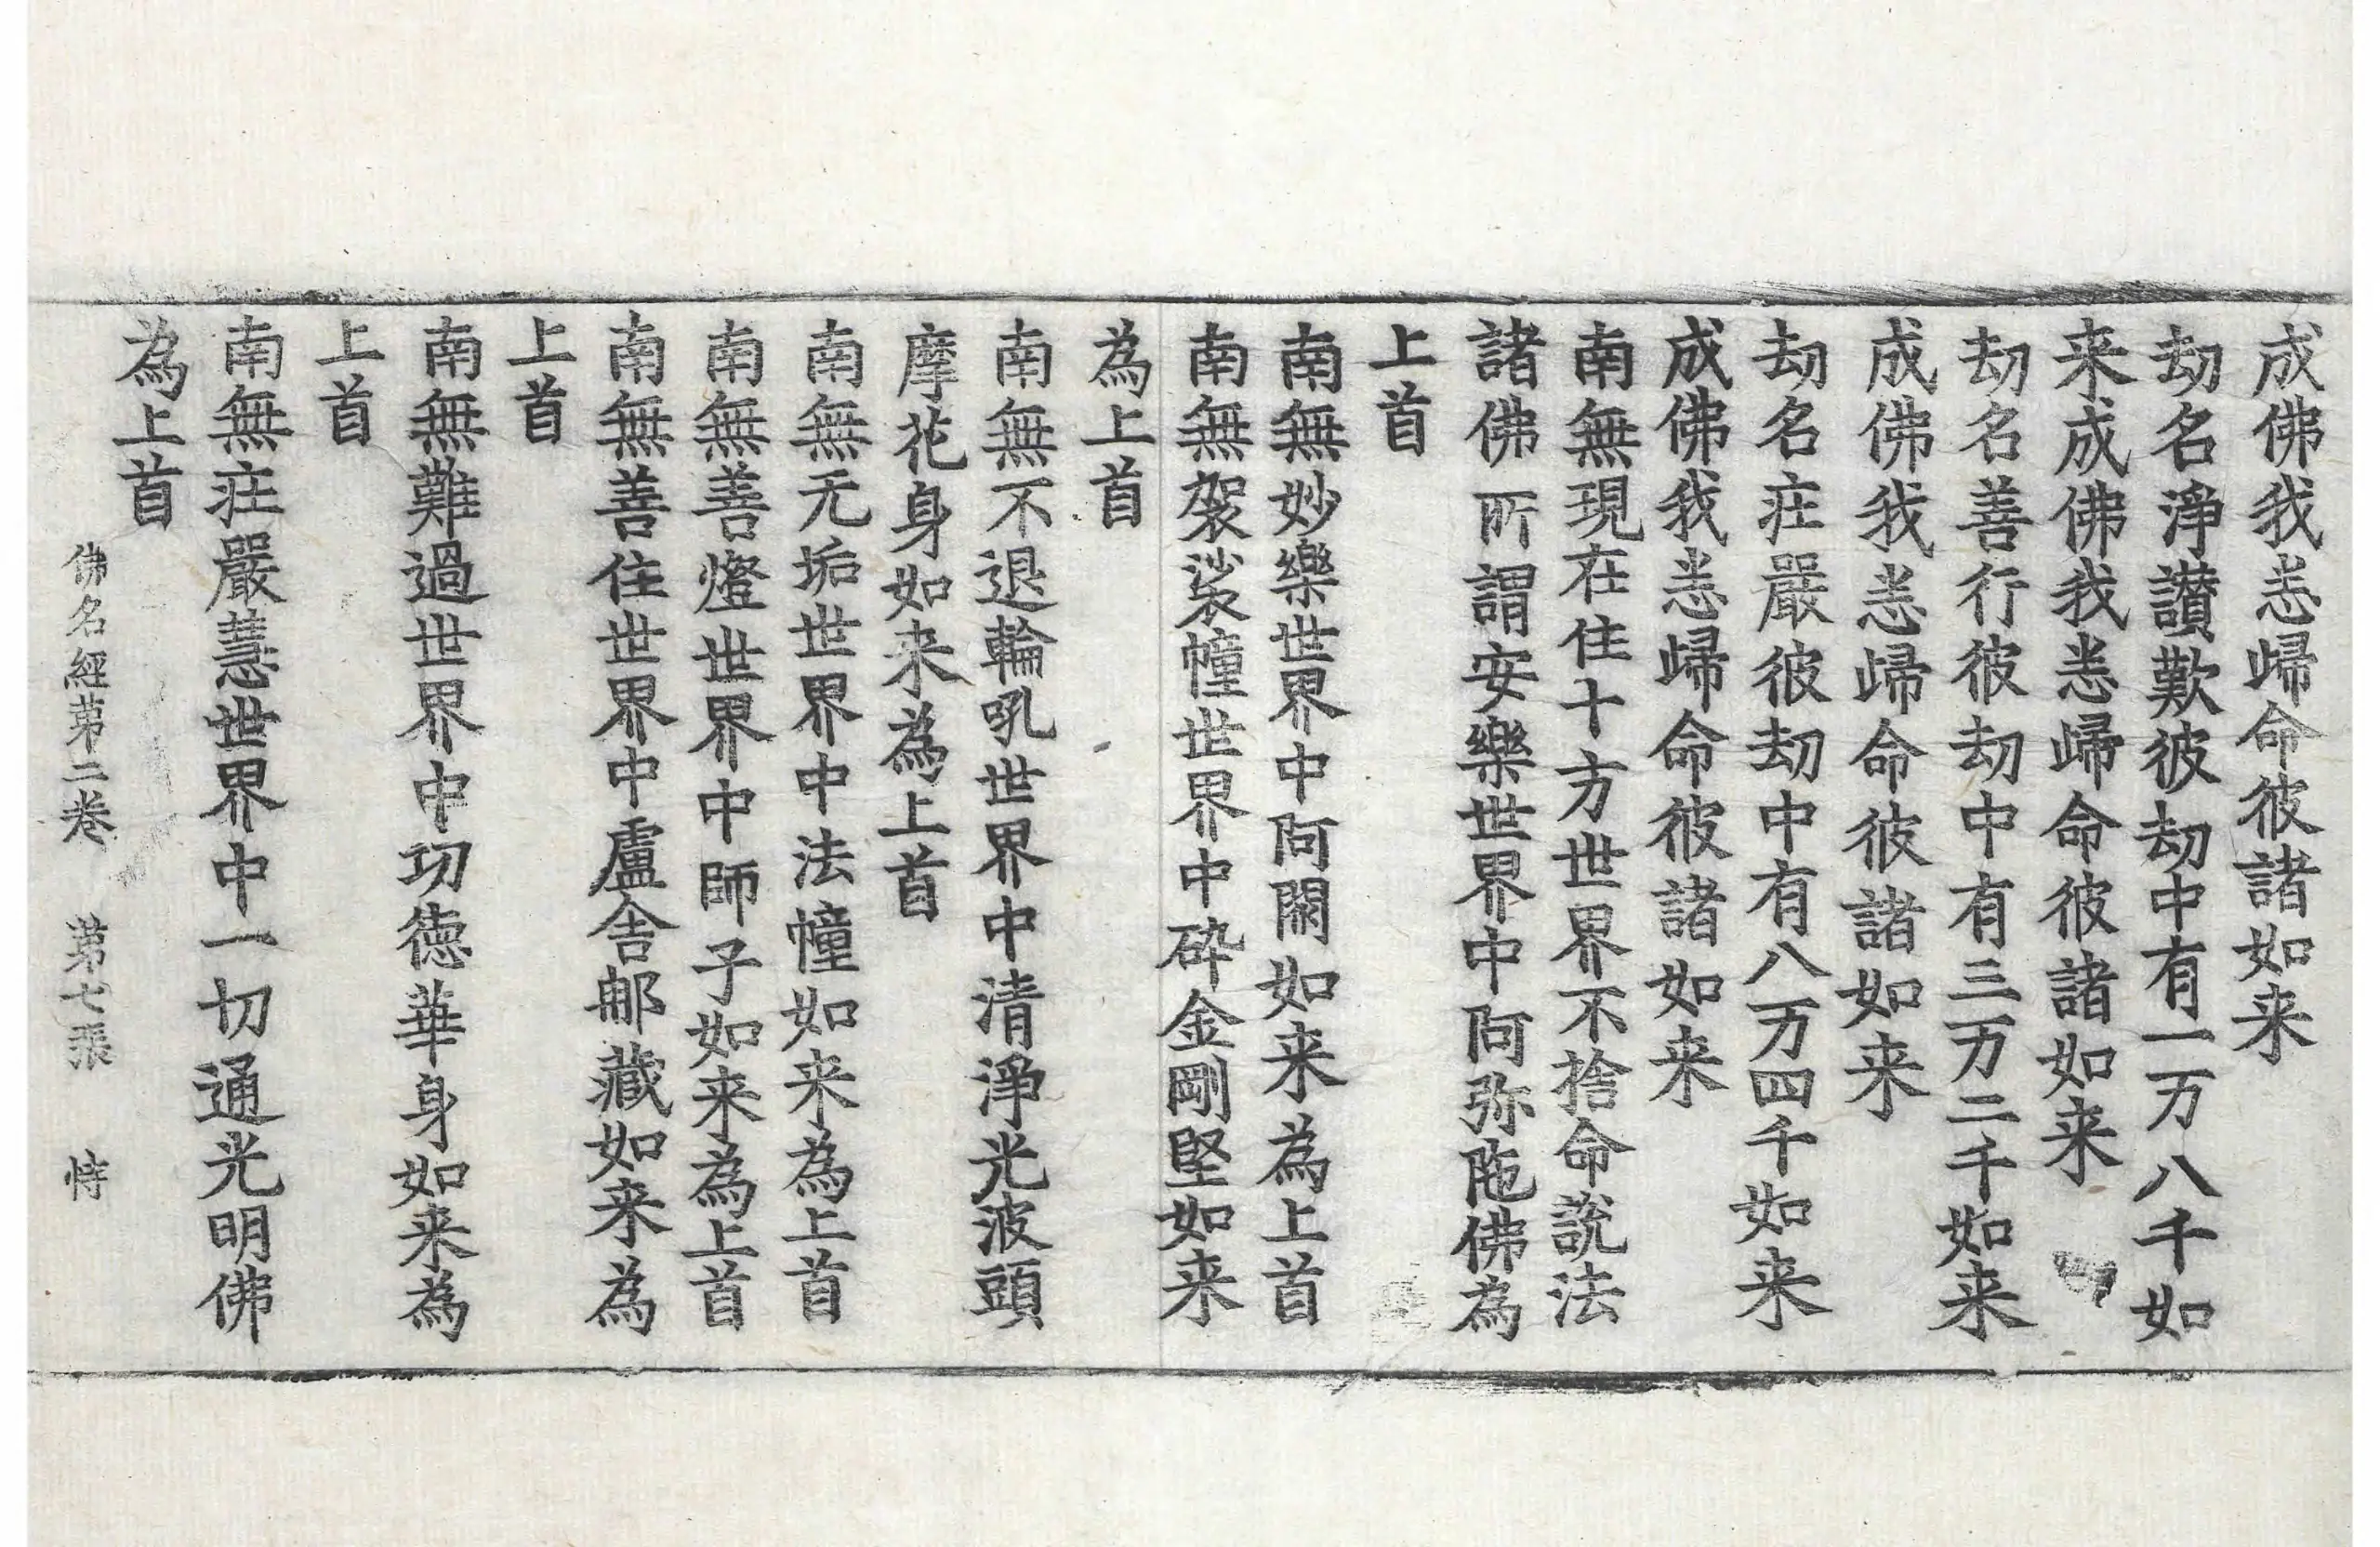 成佛我悉歸命彼諸如来
劫名淨讃歎彼劫中有一万八千如
来成佛我悉歸命彼諸如来
劫名善行彼劫中有三万二千如来
成佛我悉歸命彼諸如来
劫名庄嚴彼劫中有八万四千如来
成佛我悉歸命彼諸如来
南無現在住十方世界不捨命說法
諸佛所謂安樂世界中阿弥陁佛為
上首
南無妙樂世界中阿閦如来為上首
南無袈裟幢世界中碎金剛堅如来
為上首
南無不退輪吼世界中清淨光波頭
摩花身如来為上首
南無无垢世界中法幢如来為上首
南無善燈世界中師子如来為上首
南無善住世界中盧舍那藏如来為
上首
南無難過世界中功德華身如来為
上首
南無庄嚴慧世界中一切通光明佛
為上首
佛名經第二卷 第七張 恃